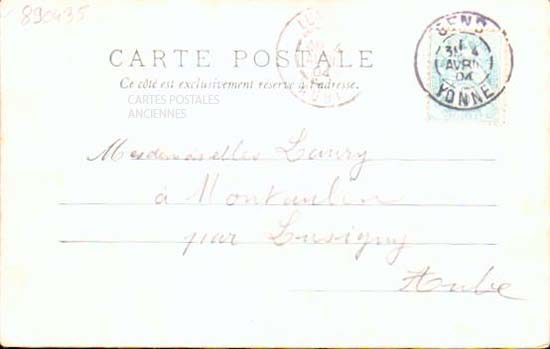 890435
CARTE POSTALE
Ce côté est exclusivement réservé à l'adresse.
CARTES POSTALES
ANCIENNES
04
3E 4
AVRIL
04
YONNE
Mesdemoiselles Laury
à Montaulin
par Lusigny
Aube